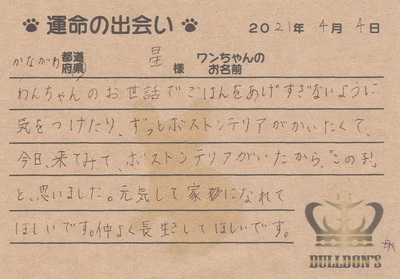 運命の出会い 2021年4月4日
かながわ 都道府県 星 様 ワンちゃんのお名前
わんちゃんのお世話でごはんをあげすぎないように
気をつけたり、ずっとボストンテリアがかいたくて、
今日、来てみて、ボストンテリアがいたから、「この子!」
と、思いました。元気して家族になれて
ほしいです。仲よく長生きしてほしいです。
BULLDON'S